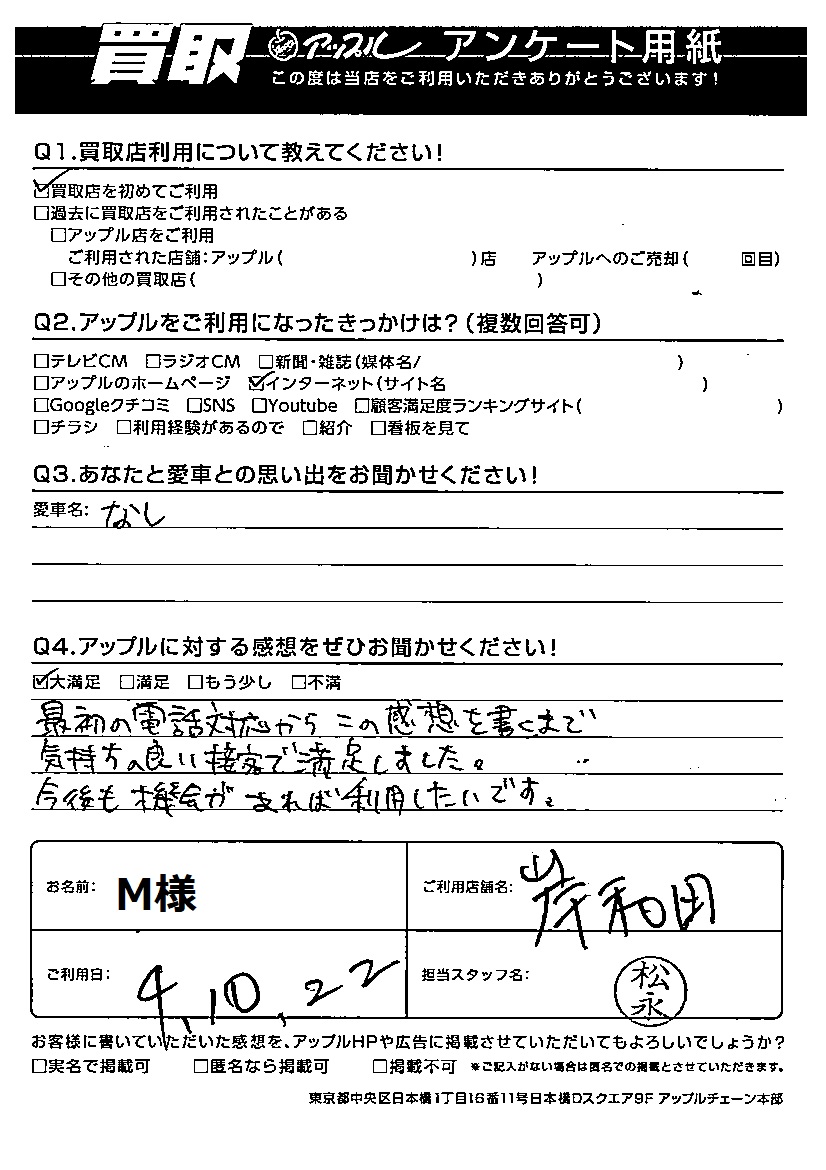 買取 アップル アンケート用紙
この度は当店をご利用いただきありがとうございます!
Q1.買取店利用について教えてください!
☑買取店を初めてご利用
□過去に買取店をご利用されたことがある
□アップル店をご利用
ご利用された店舗:アップル( )店 アップルへのご売却( 回目)
□その他の買取店( )
Q2.アップルをご利用になったきっかけは?(複数回答可)
□テレビCM □ラジオCM □新聞・雑誌(媒体名/ )
□アップルのホームページ ☑インターネット(サイト名 )
□Googleクチコミ □SNS □Youtube □顧客満足度ランキングサイト( )
□チラシ □利用経験があるので □紹介 □看板を見て
Q3.あなたと愛車との思い出をお聞かせください!
愛車名: なし
Q4.アップルに対する感想をぜひお聞かせください!
☑大満足 □満足 □もう少し □不満
最初の電話対応からこの感想を書くまで
気持ちの良い接客で満足しました。
今後も機会があれば利用したいです。
お名前: M様 ご利用店舗名: 岸和田
ご利用日: 4,10,22 担当スタッフ名: 松永
お客様に書いていただいた感想を、アップルHPや広告に掲載させていただいてもよろしいでしょうか?
□実名で掲載可 □匿名なら掲載可 □掲載不可 ※ご記入がない場合は匿名での掲載とさせていただきます。
東京都中央区日本橋1丁目16番11号日本橋Dスクエア9F アップルチェーン本部